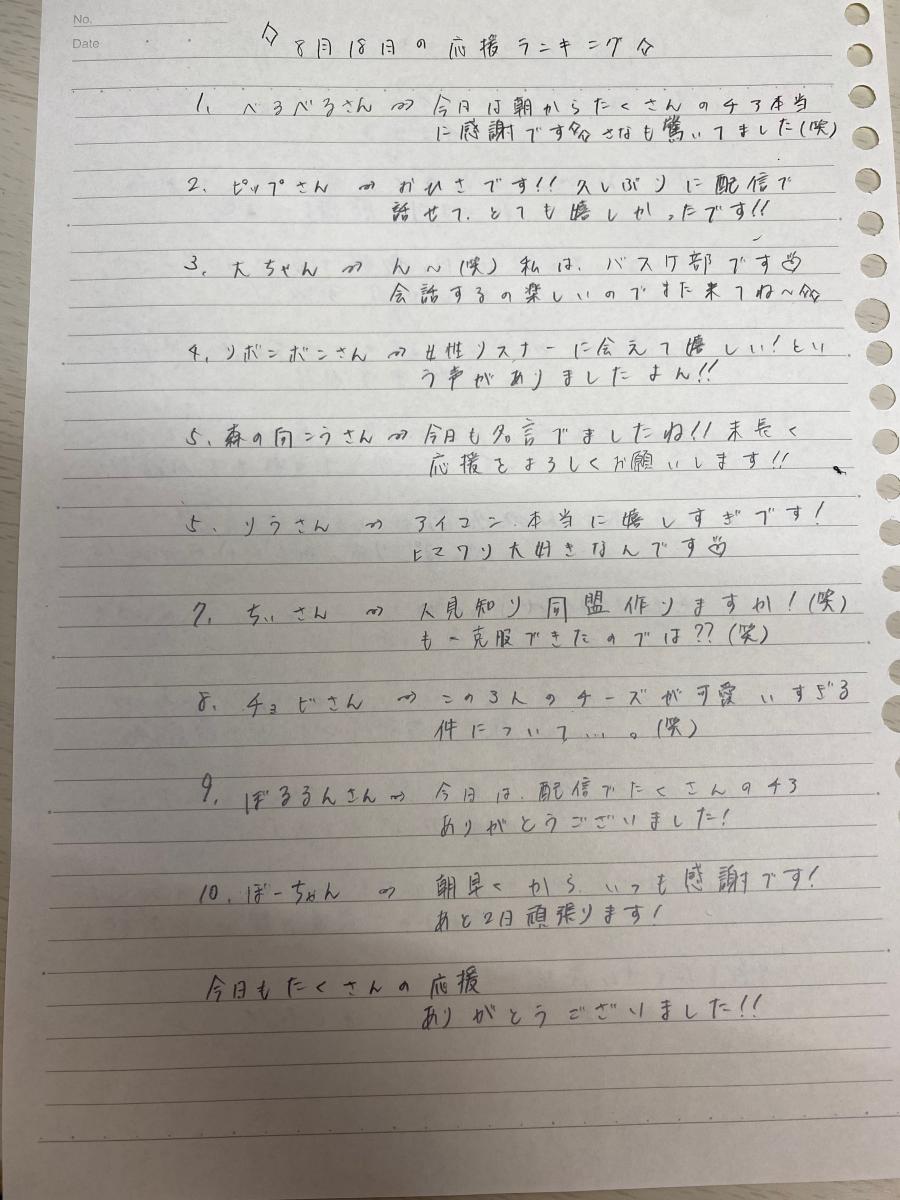 No.
Date
☆ 8月18日の応援ランキング☆
1, べるべるさん ⇒ 今日は朝からたくさんのチア本当
に感謝です☆☆さなも驚いてました(笑)
2, ピップさん ⇒ おひさです!! 久しぶりに配信で
話せて、とても嬉しかったです!!
3, 大ちゃん ⇒ ん～(笑) 私は、バスケ部です♡
会話するの楽しいのでまた来てね～☆☆
4, リボンボンさん ⇒ 女性リスナーに会えて嬉しい!とい
う声がありましたよん!!
5, 森の向こうさん ⇒ 今日も名言でましたね!! 末長く
応援をよろしくお願いします!!
5, りうさん ⇒ アイコン、本当に嬉しすぎです!
ヒマワリ大好きなんです♡
7, ちぃさん ⇒ 人見知り同盟作りますか!(笑)
も一克服できたのでは??(笑)
8, チョビさん ⇒ この3人のチーズが可愛いすぎる
件について…。(笑)
9, ぽるるんさん ⇒ 今日は、配信でたくさんのチア
ありがとうございました!
10, ぼーちゃん ⇒ 朝早くから、いつも感謝です!
あと2日頑張ります!
今日もたくさんの応援
ありがとうございました!!